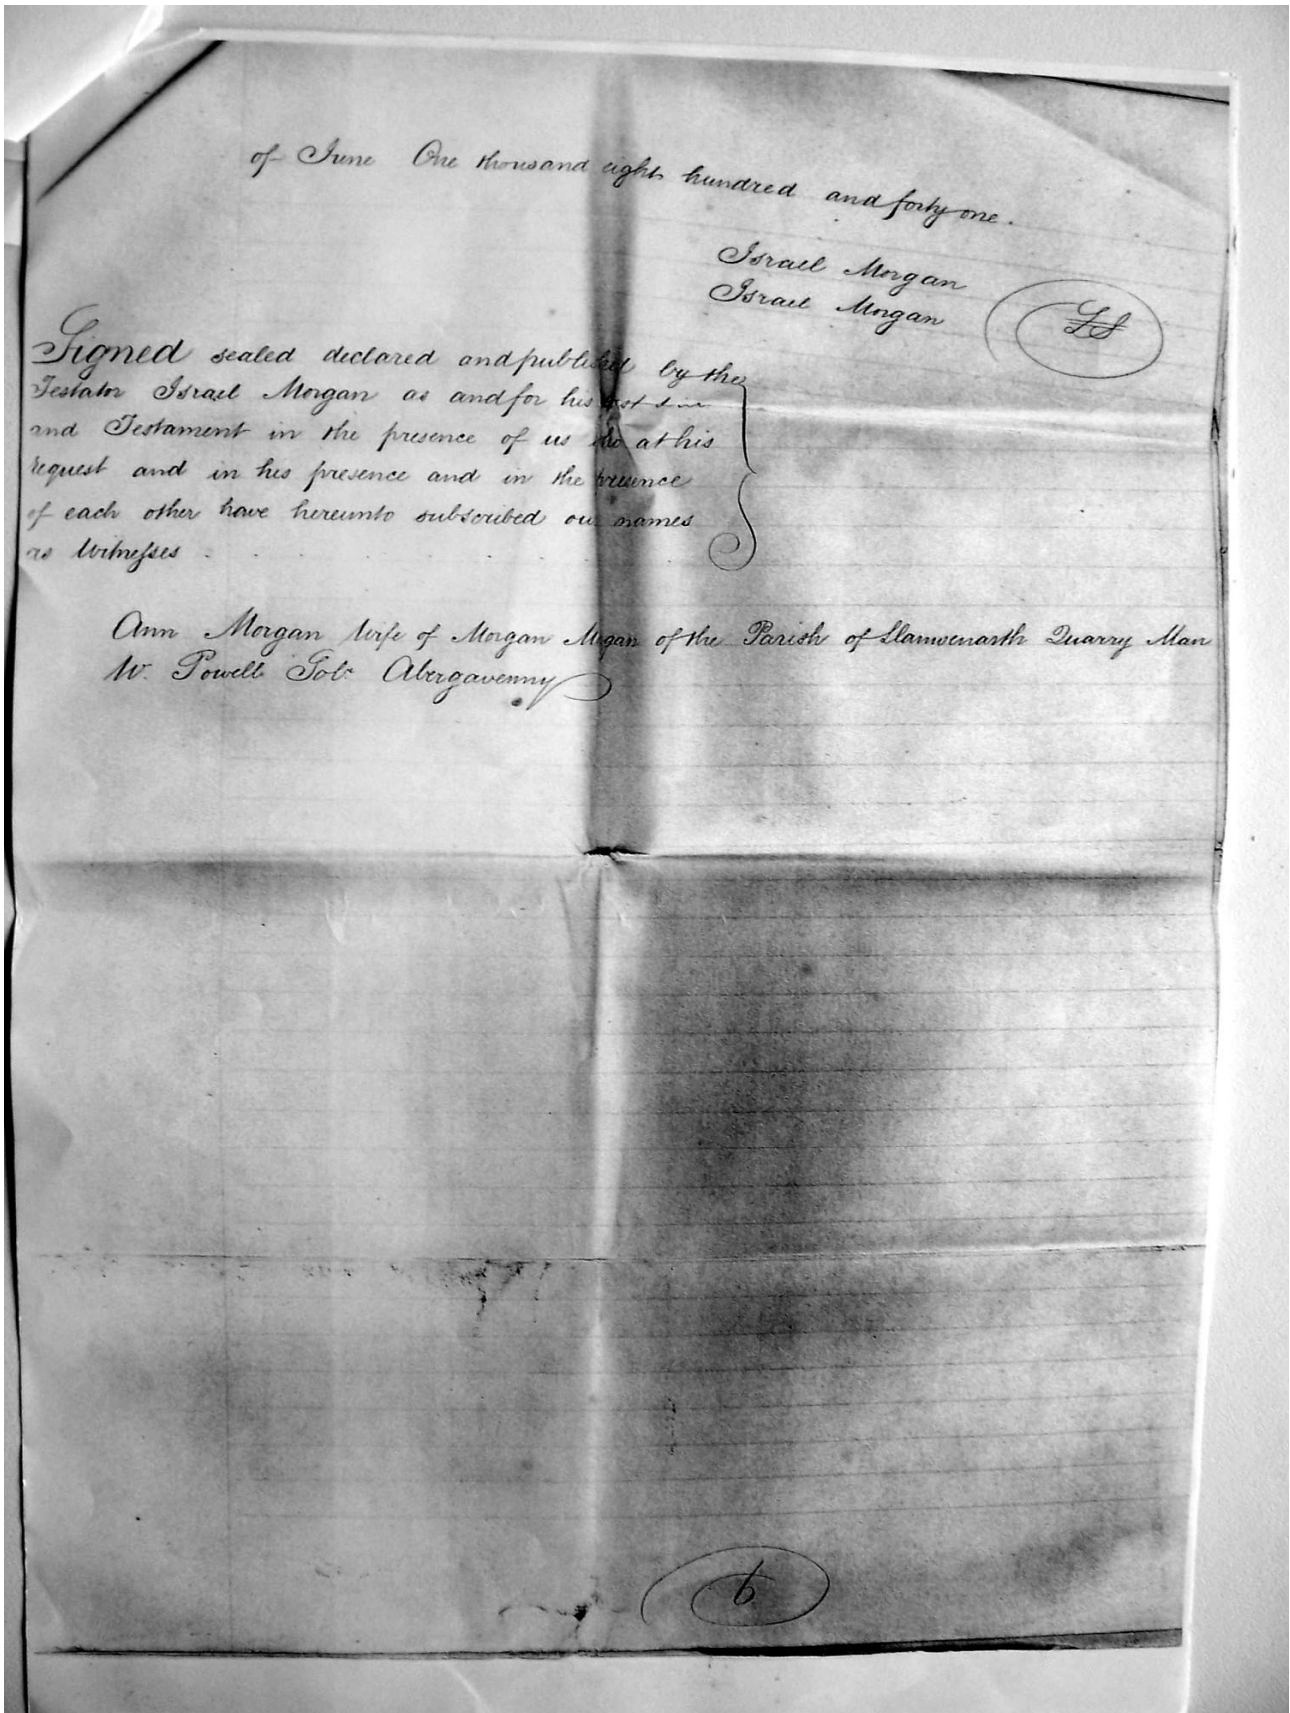 of June One thousand eight hundred and forty one.
Israel Morgan
Israel Morgan
LS
Signed sealed declared and published by the
Testator Israel Morgan as and for his last
and Testament in the presence of us who at his
request and in his presence and in the presence
of each other have hereunto subscribed our names
as Witnesses
Ann Morgan Wife of Morgan Morgan of the Parish of Llanwenarth Quarry Man
W. Powell Solr Abergavenny
6